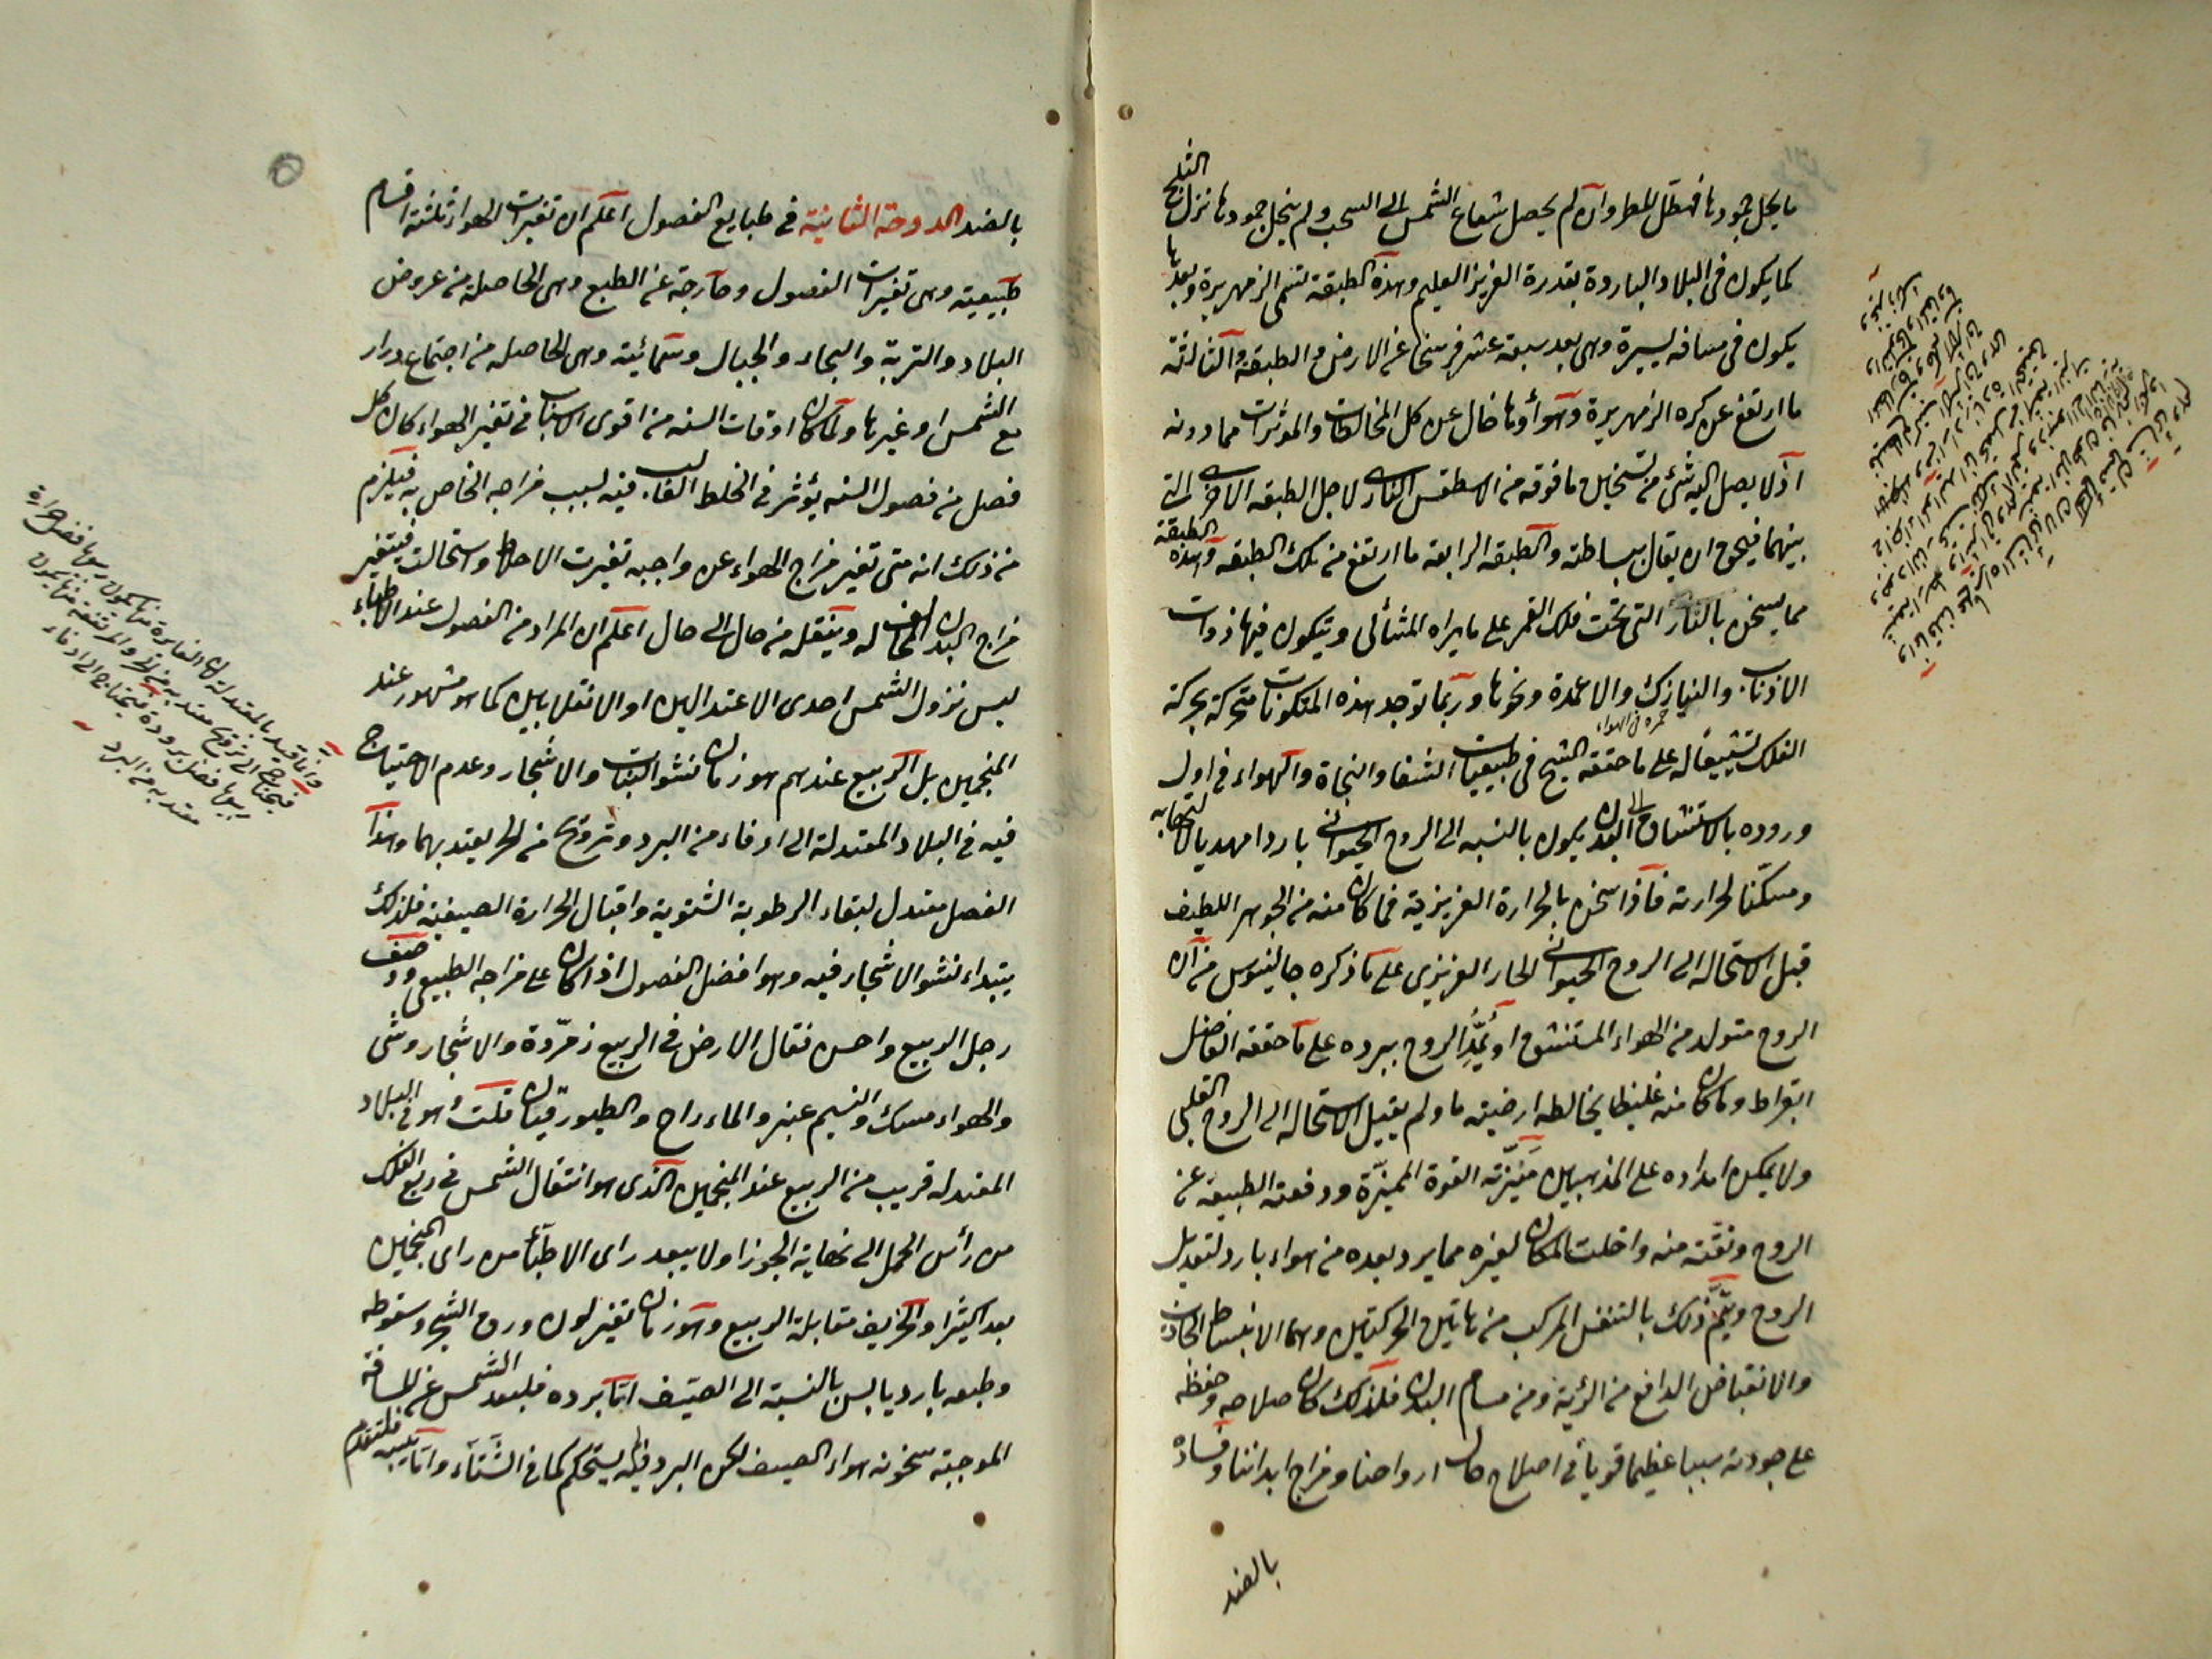 ما يحل جمودها فهطل المطر وان لم يحصل شعاع الشمس الى السحب ولم ينحل جمودها نزل الثلج
كما يكون فى البلاد الباردة بقدرة العزيز العليم وهذه الطبقة تسمى الزمهريرة وبعدها
يكون فى مسافه يسيرة وهى بعد سبعة عشر فرسخا عن الارض والطبقة الثالثة
ما ارتفع عن كره الزمهريرة وهواؤها خال عن كل المخالطات والموثرات مما دونه
اذ لا يصل اليه شئ من تسخين ما فوقه من الاسطقس النارى لاجل الطبقه الاخرى التى
بينهما فيحق ان يقال ببساطته والطبقه الرابعة ما ارتفع من تلك الطبقه وهذه الطبقة
مما يسخن بالنار التى تحت فلك القمر على ما يراه المشائى ويتكون فيها ذوات
الاذناب والنيازك والاعمدة ونحوها وربما توجد هذه المتكونات متحركة بحركة
الفلك تشييعا له على ما حققه الشيخ فى طبيعيات الشفا والنجاة والهواء فى اول
وروده بالاستنشاق الى البدن يكون بالنسبه الى الروح الحيوانى باردا مهديا لالتهابه
ومسكنا لحرارته فاذا سخن بالحرارة الغريزية فما كان منه من الجوهر اللطيف
قبل الاستحاله الى الروح الحيوانى الحار الغريزى على ما ذكره جالينوس من ان
الروح متولد من الهواء المستنشق او يمد الروح ببرده على ما حققه الفاضل
ابقراط وما كان منه غليظا يخالطه ارضية ما ولم يقبل الاستحاله الى الروح القلبى
ولا يمكن امداده على المذهبين ميزته القوة المميزة ودفعته الطبيعة عن
الروح ونقته منه واخلت المكان لغيره مما يرد بعده من هواء بارد لتعديل
الروح ويتم ذلك بالتنفس المركب من هاتين الحركتين وهما الانبساط الجاذب
والانقباض الدافع من الرئية ومن مسام البدن فلذلك كان صلاحه وحفظه
على جودته سببا عظيما قويا فى اصلاح حال ارواحنا ومزاج ابداننا وفساده
بالضد
بالضد الدوحة الثانية فى طبايع الفصول اعلم ان تغيرات الهواء ثلثة اقسام
طبيعية وهى تغيرات الفصول وخارجة عن الطبع وهى الحاصلة من عروض
البلاد والتربة والبحار والجبال وسمائية وهى الحاصله من اجتماع درار
مع الشمس او غيرها ولما كان اوقات السنه من اقوى الاسباب فى تغير الهواء كان كل
فصل من فصول السنه يؤثر فى الخلط الغالب فيه لسبب مزاجه الخاص به فيلزم
من ذلك انه متى تغير مزاج الهواء عن واجبه تغيرت الاخلاط واستحالت فيتغير
مزاج البدن المخالف له وينقله من حال الى حال اعلم ان المراد من الفصول عند الاطباء
ليس نزول الشمس احدى الاعتدالين او الانقلابين كما هو مشهور عند
المنجمين بل الربيع عندهم هو زمان نشو النبات والاشجار وعدم الاحتياج
فيه فى البلاد المعتدلة الى ادفاء من البرد وترويح من الحر يعتد بهما وهذا
الفصل معتدل لبقاء الرطوبة الشتوية واقبال الحرارة الصيفية فلذلك
يبتداء نشو الاشجار فيه وهو افضل الفصول اذا كان على مزاجه الطبيعى ووصف
رجل الربيع واحسن فقال الارض فى الربيع زمردة والاشجار وشى
والهواء مسك والنسيم عنبر والماء راح والطيور قيان قلت وهو فى البلاد
المعتدله قريب من الربيع عند المنجمين الذى هو انتقال الشمس فى ربع الفلك
من رأس الحمل الى نهاية الجوزا ولا يبعد راى الاطباء من راى المنجمين
بعدا كثيرا والخريف مقابلة الربيع وهو زمان تغير لون ورق الشجر وسقوطه
وطبعه بارد يابس بالنسبة الى الصيف اما برده فلبعد الشمس عن المسافة
الموجبة سخونه هواء الصيف لكن البرد فيه لم يستحكم كما فى الشتاء واما يبسه فلتقدم
وانما قيد بالمعتدلة لان الغايرة منها يكون ربيعها فضل حرارة
فيحتاج الى ترويح معتد به من الحر والمرتفعة منها يكون
ربيعها فضل برودة فيحتاج الى ادفاء
معتد به من البرد